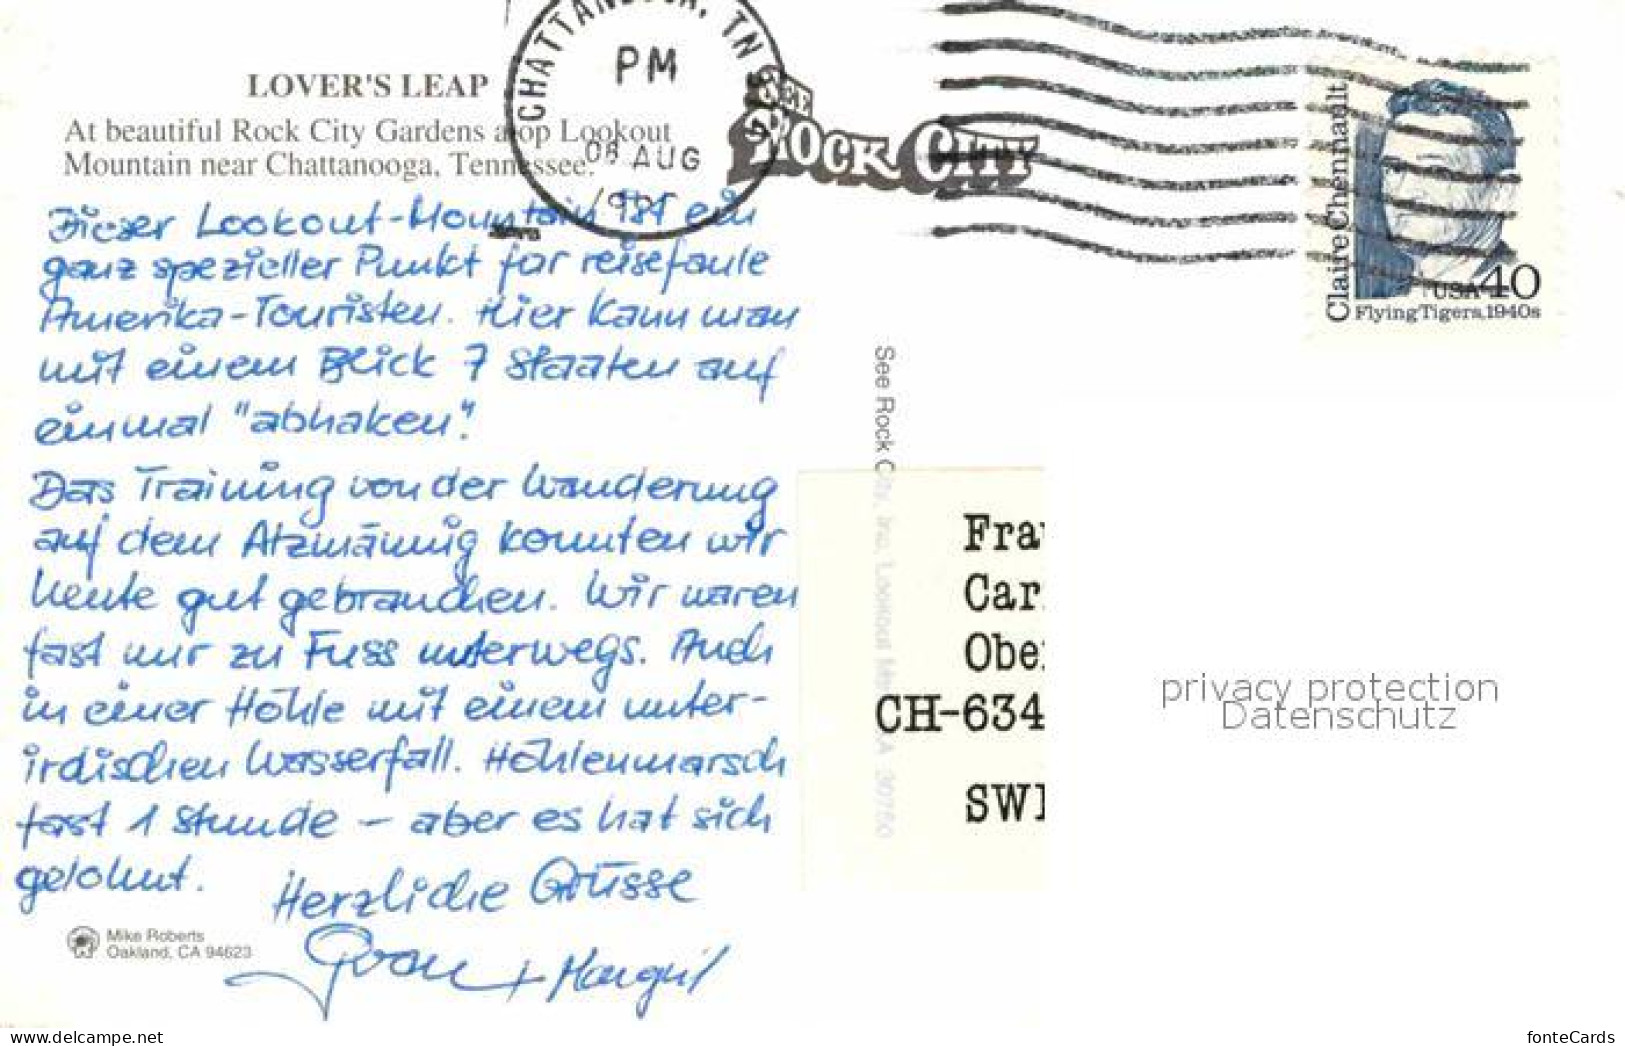 LOVER'S LEAP
At beautiful Rock City Gardens atop Lookout
Mountain near Chattanooga, Tennessee.
CHATTANOOGA, TN
PM
08 AUG
SEE
ROCK CITY
Claire Chennault
USA 40
Flying Tigers, 1940s
Dieser Lookout-Mountain ist ein
ganz spezieller Punkt for reisefaule
Amerika-Touristen. Hier kann man
mit einem Blick 7 Staaten auf
einmal "abhaken".
Das Training von der Wanderung
auf dem Atzmännig konnten wir
heute gut gebrauchen. Wir waren
fast nur zu Fuss unterwegs. Auch
in einer Höhle mit einem unter-
irdischen Wasserfall. Höhlenmarsch
fast 1 Stunde – aber es hat sich
gelohnt.
Herzliche Grüsse
Mike Roberts
Oakland, CA 94623
See Rock City, Inc. Lookout Mtn. GA 30750
Frau
Car
Ober
CH-634
SWI
privacy protection
Datenschutz
www.delcampe.net
fonteCards